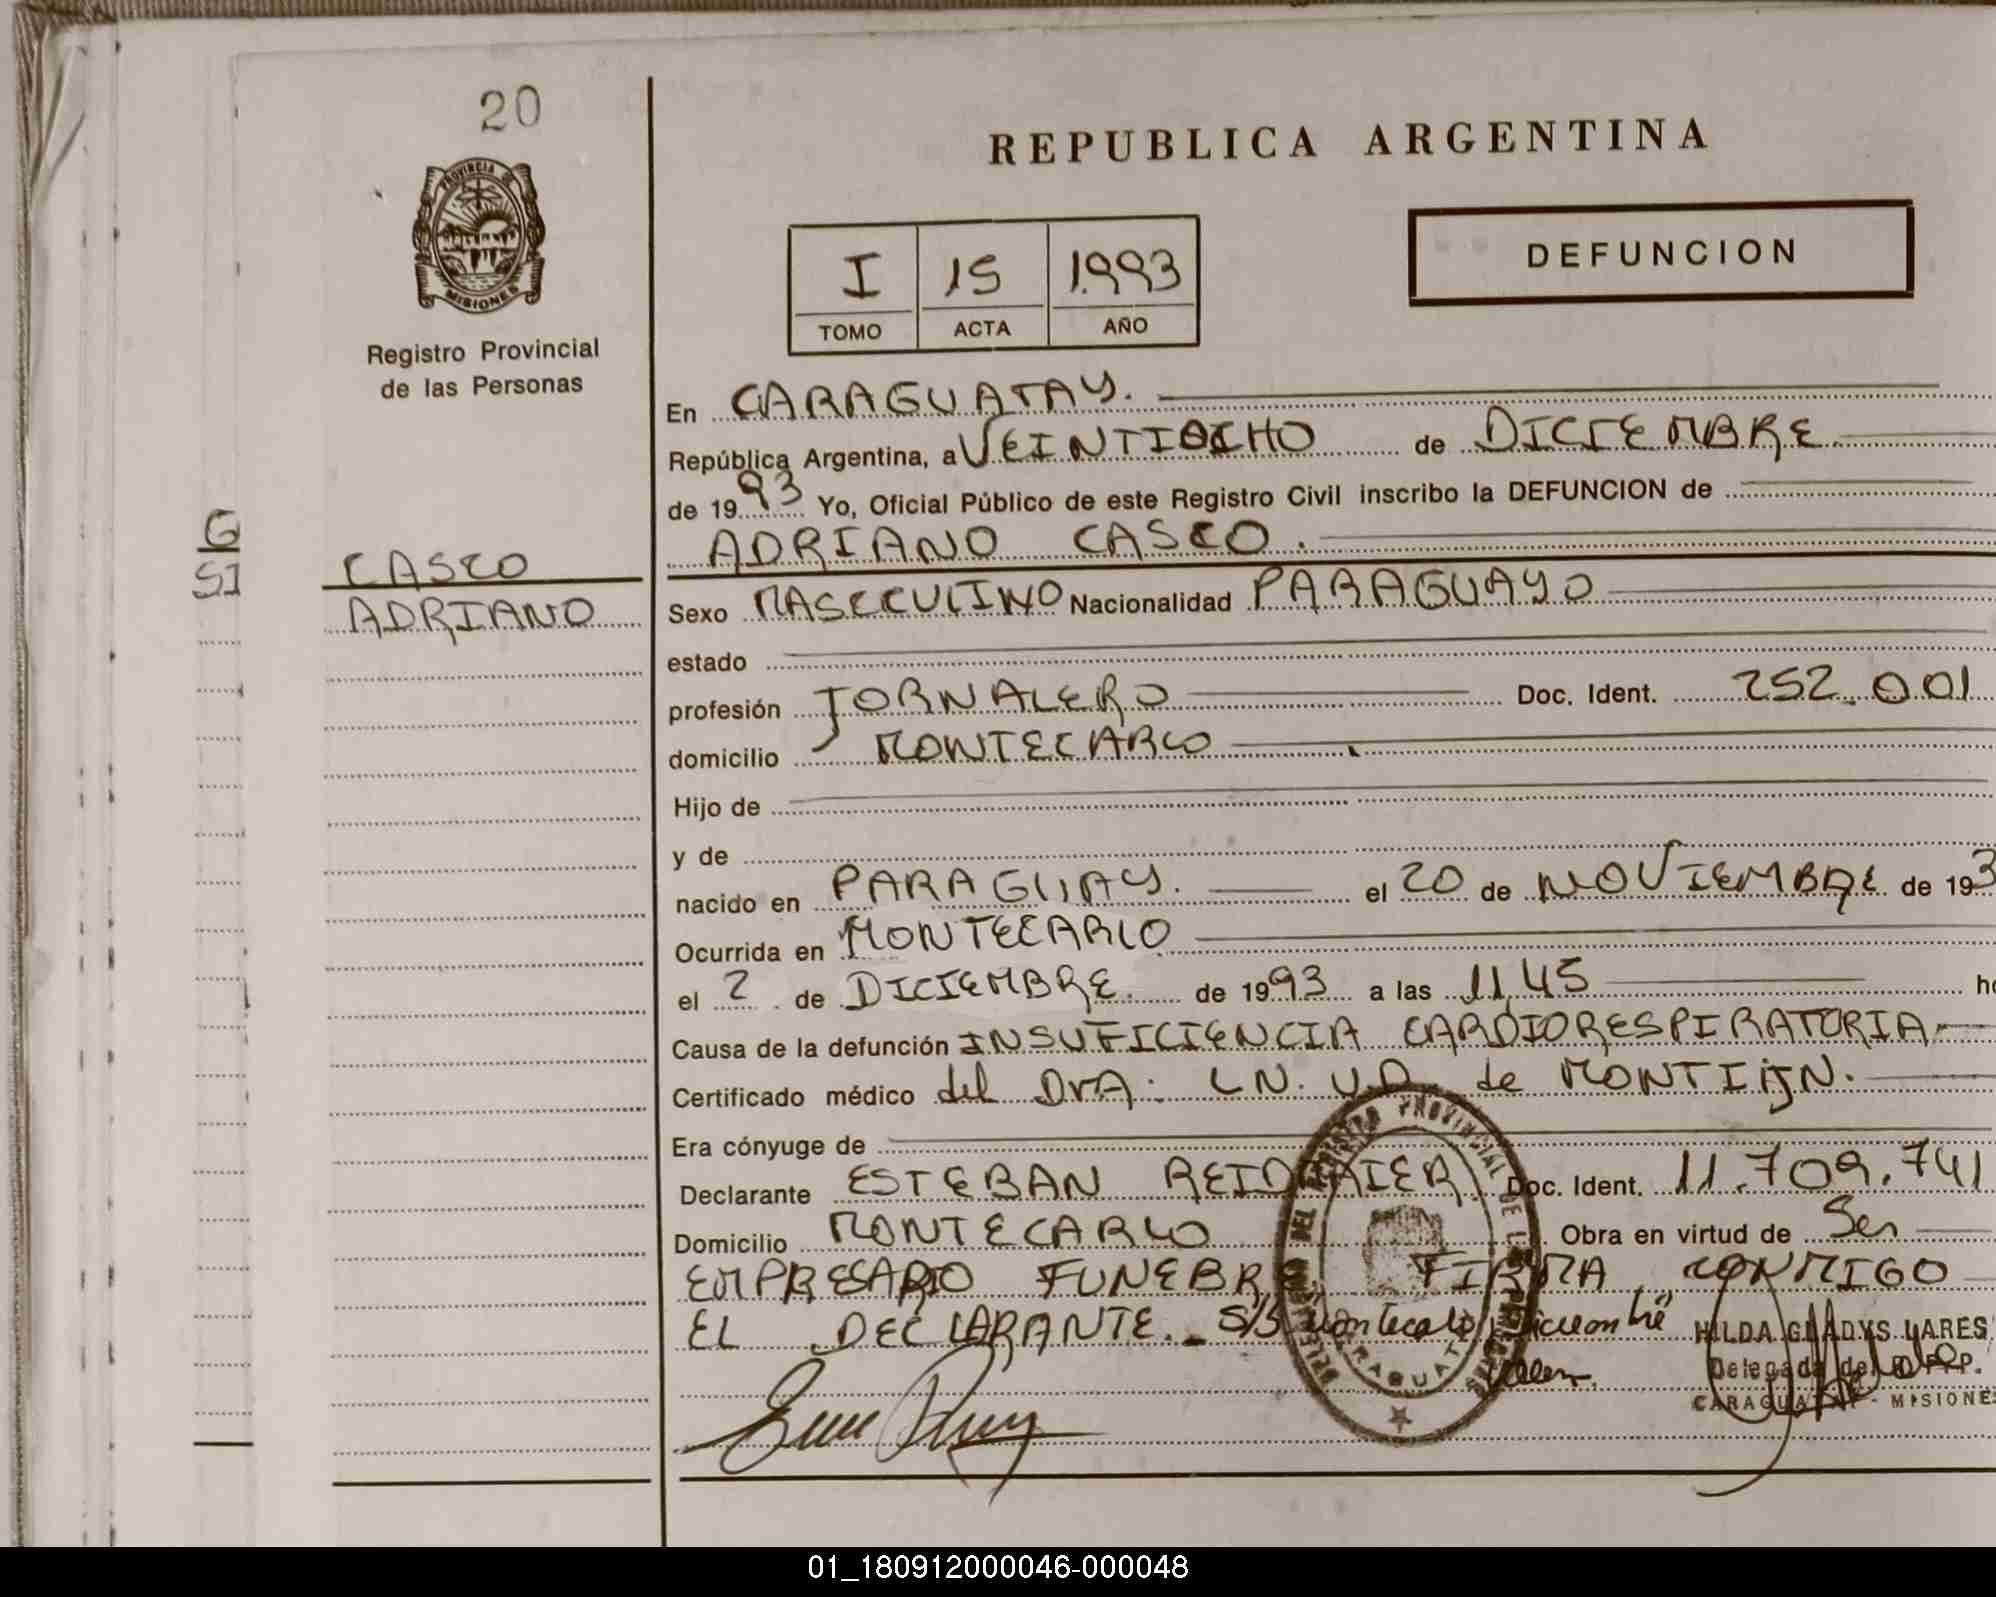 20
REPUBLICA ARGENTINA
PROVINCIA DE
MISIONES
Registro Provincial
de las Personas
I 15 1.993
TOMO ACTA AÑO
DEFUNCION
G
SI
CASCO
ADRIANO
En CARAGUATAY.
República Argentina, a VEINTIOCHO de DICIEMBRE
de 1993 Yo, Oficial Público de este Registro Civil inscribo la DEFUNCION de
ADRIANO CASCO.
Sexo MASCCULINO Nacionalidad PARAGUAYO
estado
profesión JORNALERO Doc. Ident. 252.001
domicilio MONTECARLO
Hijo de
y de
nacido en PARAGUAY. el 20 de NOVIEMBRE de 193
Ocurrida en MONTECARLO
el 2 de DICIEMBRE. de 1993 a las 11,45 ho
Causa de la defunción INSUFICIENCIA CARDIORESPIRATORIA
Certificado médico del DrA: de
Era cónyuge de
Declarante ESTEBAN Doc. Ident. 11.709.741
Domicilio MONTECARLO Obra en virtud de Ser
EMPRESARIO FUNEBR FIRMA CONMIGO
EL DECLARANTE._ S/B Montecarlo, Diciembre
Valen.
HILDA GLADYS
Delegada del R.P.P.
CARAGUATAY - MISIONES
01_180912000046-000048